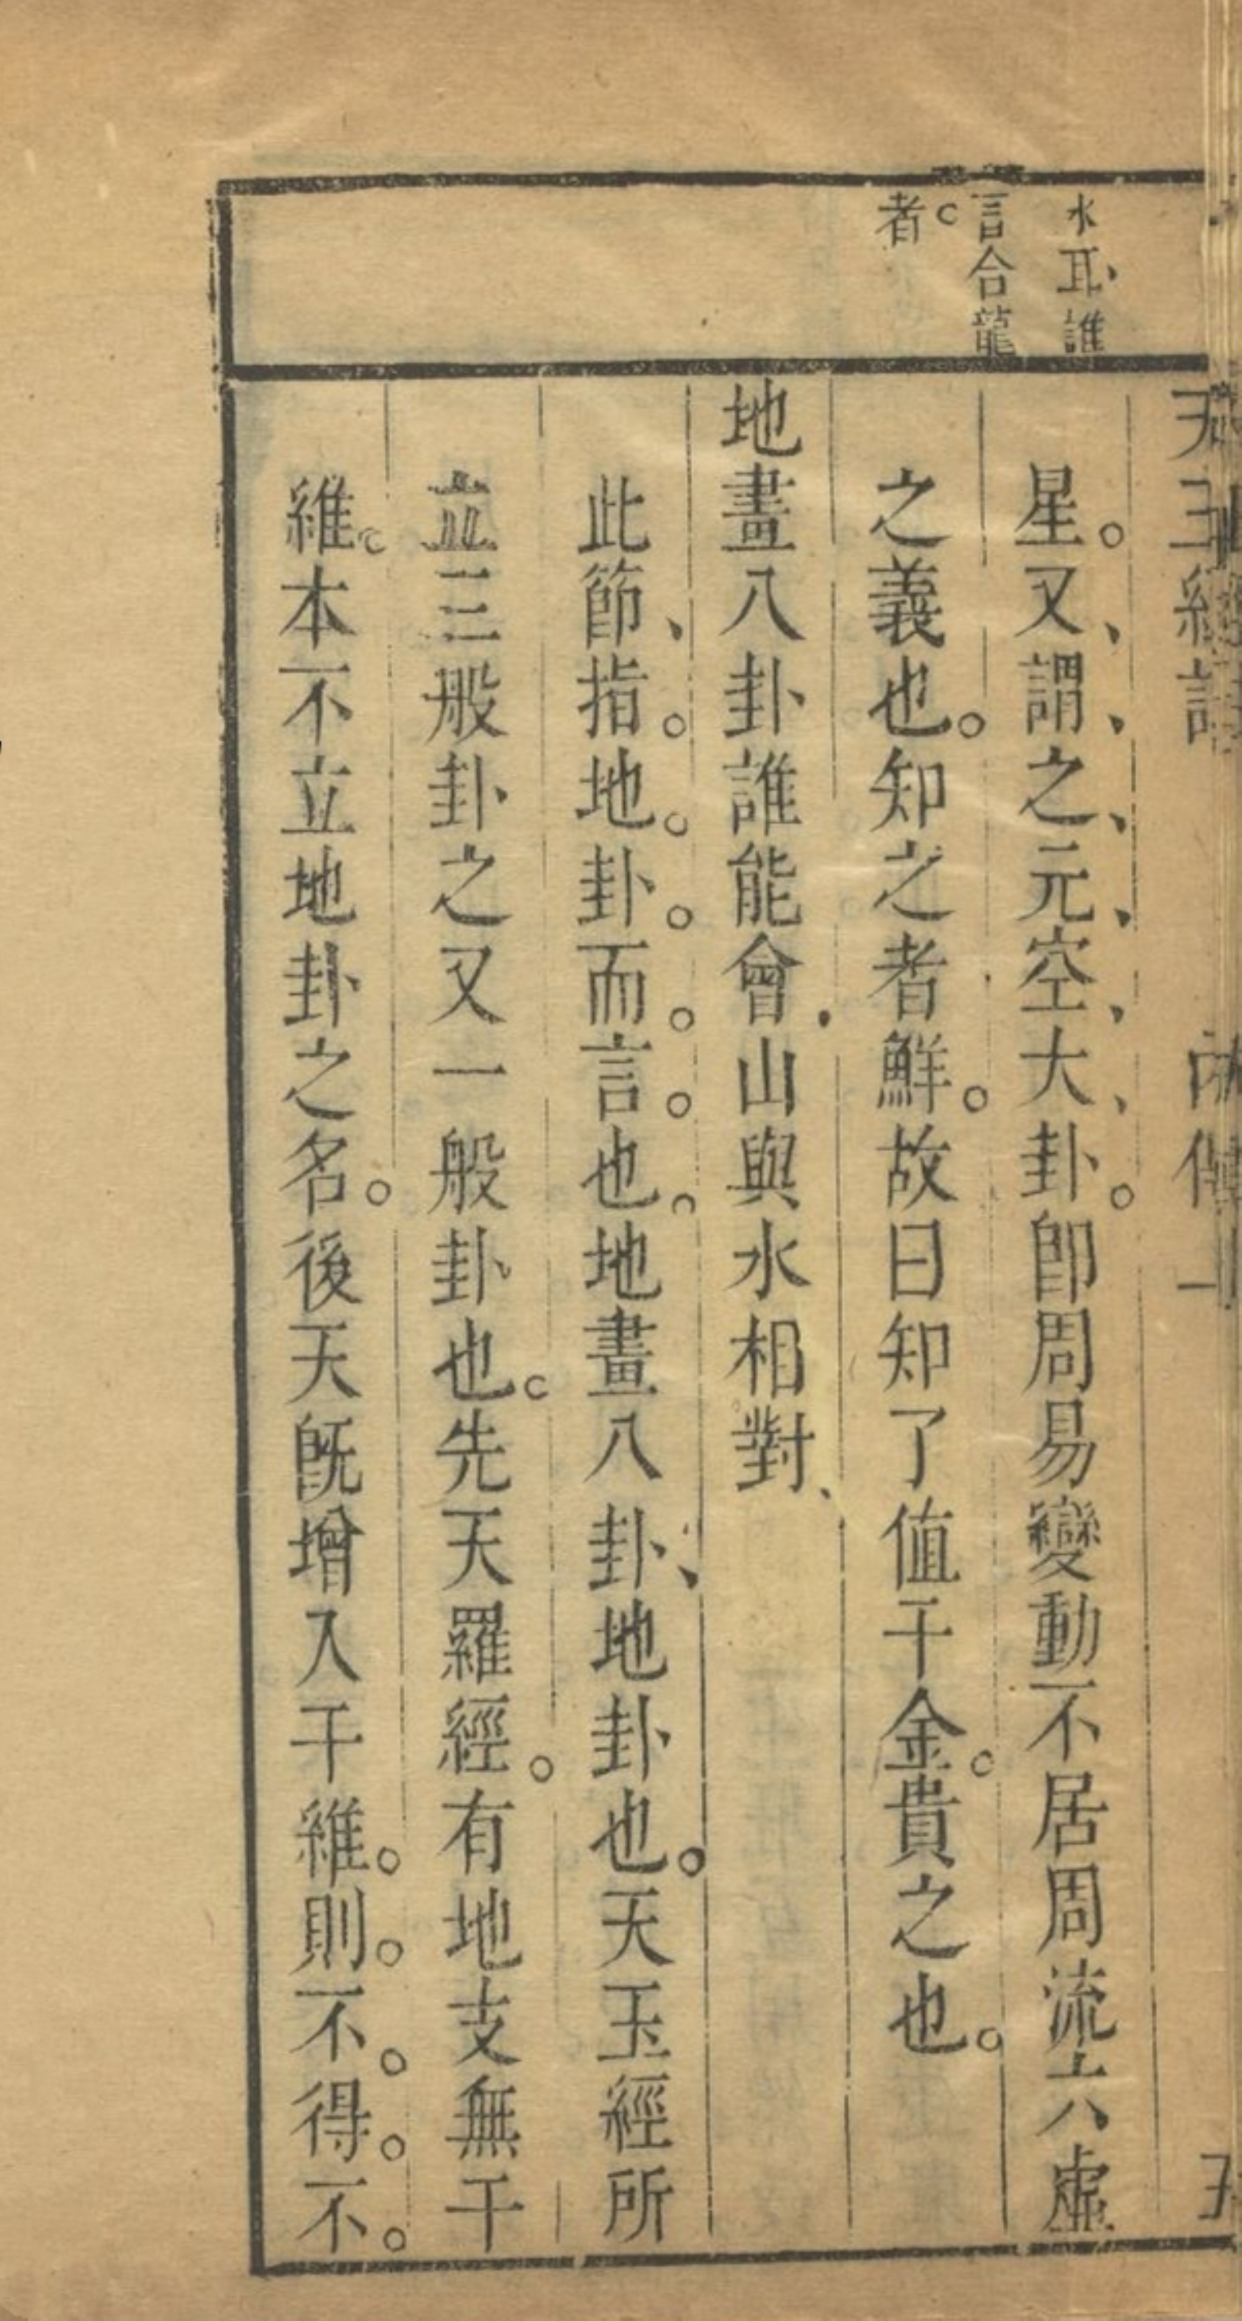 水耳、誰
言合龍
者。
星。又、謂、之、元、空、大、卦。卽周易變動不居周流六虛
之義也。知之者鮮。故曰知了值千金。貴之也。
地畫八卦誰能會、山與水相對、
此節、指。地。卦。而。言。也。地畫八卦、地卦也。天玉經所
立三般卦之又一般卦也。先天羅經。有地支無干
維。本不立地卦之名。後天旣增入干維。則。不。得。不。